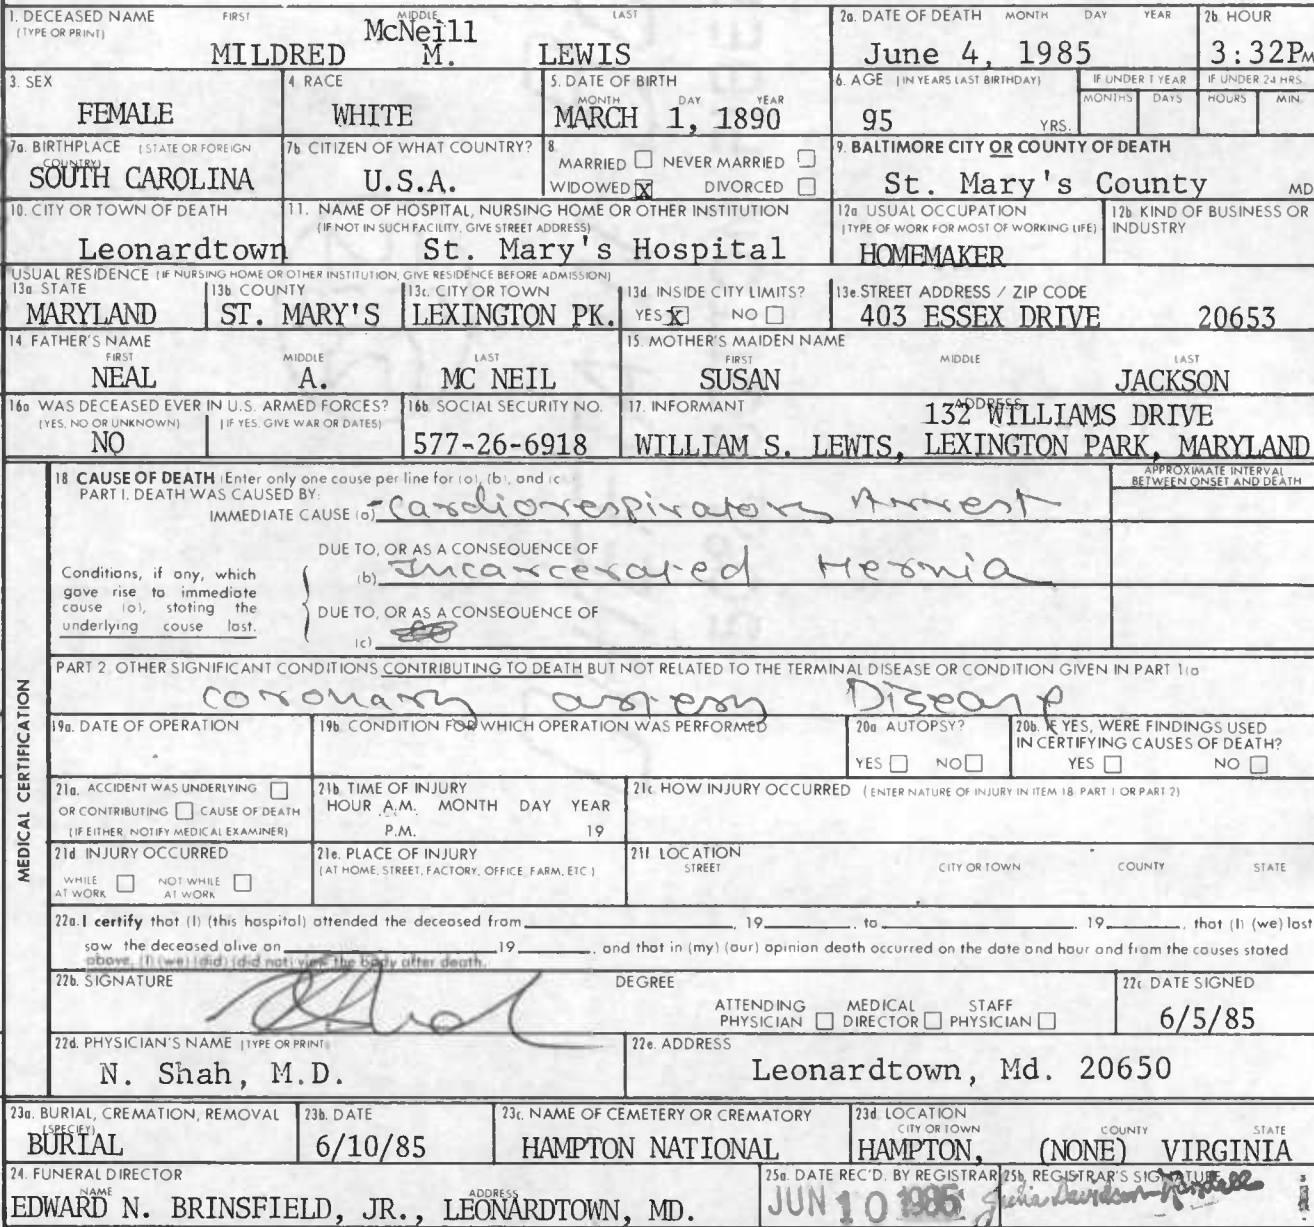 1. DECEASED NAME (TYPE OR PRINT) FIRST MIDDLE LAST
McNeill
MILDRED M. LEWIS
2a. DATE OF DEATH MONTH DAY YEAR
June 4, 1985
2b. HOUR
3:32PM
3. SEX
FEMALE
4 RACE
WHITE
5. DATE OF BIRTH
MONTH DAY YEAR
MARCH 1, 1890
6. AGE (IN YEARS LAST BIRTHDAY)
95 YRS.
IF UNDER 1 YEAR
MONTHS DAYS
IF UNDER 24 HRS
HOURS MIN.
7a. BIRTHPLACE (STATE OR FOREIGN COUNTRY)
SOUTH CAROLINA
7b CITIZEN OF WHAT COUNTRY?
U.S.A.
8
MARRIED ☐ NEVER MARRIED ☐
WIDOWED ☒ DIVORCED ☐
9. BALTIMORE CITY OR COUNTY OF DEATH
St. Mary's County MD
10. CITY OR TOWN OF DEATH
Leonardtown
11. NAME OF HOSPITAL, NURSING HOME OR OTHER INSTITUTION
(IF NOT IN SUCH FACILITY, GIVE STREET ADDRESS)
St. Mary's Hospital
12a USUAL OCCUPATION
(TYPE OF WORK FOR MOST OF WORKING LIFE)
HOMEMAKER
12b KIND OF BUSINESS OR INDUSTRY
USUAL RESIDENCE (IF NURSING HOME OR OTHER INSTITUTION, GIVE RESIDENCE BEFORE ADMISSION)
13a STATE
MARYLAND
13b COUNTY
ST. MARY'S
13c. CITY OR TOWN
LEXINGTON PK.
13d INSIDE CITY LIMITS?
YES ☒ NO ☐
13e. STREET ADDRESS / ZIP CODE
403 ESSEX DRIVE 20653
14 FATHER'S NAME
FIRST MIDDLE LAST
NEAL A. MC NEIL
15. MOTHER'S MAIDEN NAME
FIRST MIDDLE LAST
SUSAN JACKSON
16a WAS DECEASED EVER IN U.S. ARMED FORCES?
(YES, NO OR UNKNOWN) (IF YES, GIVE WAR OR DATES)
NO
16b. SOCIAL SECURITY NO.
577-26-6918
17. INFORMANT ADDRESS
132 WILLIAMS DRIVE
WILLIAM S. LEWIS, LEXINGTON PARK, MARYLAND
MEDICAL CERTIFICATION
18 CAUSE OF DEATH (Enter only one cause per line for (a), (b), and (c
PART I. DEATH WAS CAUSED BY:
IMMEDIATE CAUSE (a) Cardiorespiratory Arrest
APPROXIMATE INTERVAL BETWEEN ONSET AND DEATH
Conditions, if any, which gave rise to immediate cause (a), stating the underlying cause last.
DUE TO, OR AS A CONSEQUENCE OF
(b) Incarcerated Hernia
DUE TO, OR AS A CONSEQUENCE OF
(c)
PART 2 OTHER SIGNIFICANT CONDITIONS CONTRIBUTING TO DEATH BUT NOT RELATED TO THE TERMINAL DISEASE OR CONDITION GIVEN IN PART 1(a
Coronary artery Disease
19a. DATE OF OPERATION
19b CONDITION FOR WHICH OPERATION WAS PERFORMED
20a AUTOPSY?
YES ☐ NO ☐
20b. IF YES, WERE FINDINGS USED IN CERTIFYING CAUSES OF DEATH?
YES ☐ NO ☐
21a. ACCIDENT WAS UNDERLYING ☐
OR CONTRIBUTING ☐ CAUSE OF DEATH
(IF EITHER, NOTIFY MEDICAL EXAMINER)
21b TIME OF INJURY
HOUR A.M. MONTH DAY YEAR
P.M. 19
21c HOW INJURY OCCURRED (ENTER NATURE OF INJURY IN ITEM 18 PART 1 OR PART 2)
21d INJURY OCCURRED
WHILE AT WORK ☐ NOT WHILE AT WORK ☐
21e. PLACE OF INJURY
(AT HOME, STREET, FACTORY, OFFICE, FARM, ETC.)
21f LOCATION
STREET CITY OR TOWN COUNTY STATE
22a. I certify that (I) (this hospital) attended the deceased from 19 , to 19 , that (I) (we) last
saw the deceased alive on 19 , and that in (my) (our) opinion death occurred on the date and hour and from the causes stated
above, (I) (we) (did) (did not) view the body after death.
22b. SIGNATURE
DEGREE
ATTENDING PHYSICIAN ☐ MEDICAL DIRECTOR ☐ STAFF PHYSICIAN ☐
22c DATE SIGNED
6/5/85
22d. PHYSICIAN'S NAME (TYPE OR PRINT)
N. Shah, M.D.
22e. ADDRESS
Leonardtown, Md. 20650
23a. BURIAL, CREMATION, REMOVAL (SPECIFY)
BURIAL
23b. DATE
6/10/85
23c. NAME OF CEMETERY OR CREMATORY
HAMPTON NATIONAL
23d LOCATION
CITY OR TOWN COUNTY STATE
HAMPTON, (NONE) VIRGINIA
24. FUNERAL DIRECTOR
NAME ADDRESS
EDWARD N. BRINSFIELD, JR., LEONARDTOWN, MD.
25a. DATE REC'D. BY REGISTRAR
JUN 10 1985
25b. REGISTRAR'S SIGNATURE
Julia Davidson-Randall